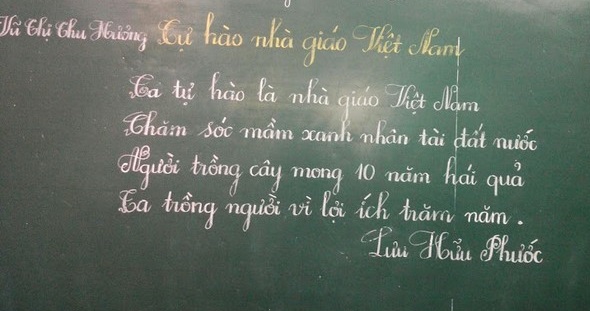 Vũ Thị Thu Hương Tự hào nhà giáo Việt Nam
Ta tự hào là nhà giáo Việt Nam
Chăm sóc mầm xanh nhân tài đất nước
Người trồng cây mong 10 năm hái quả
Ta trồng người vì lợi ích trăm năm.
Lưu Hữu Phước